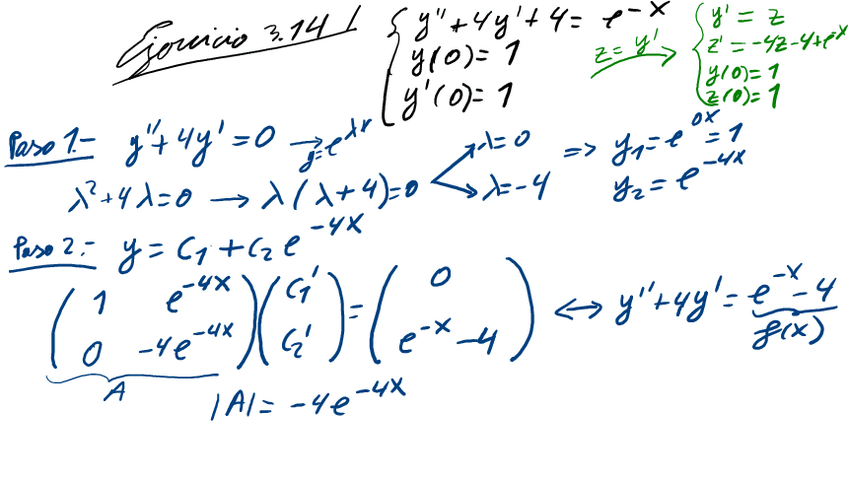 Ejercicio 3.14 | { y'' + 4y' + 4 = e^{-x}
y(0) = 1
y'(0) = 1
z = y' → { y' = z
z' = -4z - 4 + e^{-x}
y(0) = 1
z(0) = 1
Paso 1.- y'' + 4y' = 0 → y = e^{λx}
λ² + 4λ = 0 → λ(λ + 4) = 0 → λ = 0 → λ = -4 => y₁ = e^{0x} = 1
y₂ = e^{-4x}
Paso 2.- y = C₁ + C₂ e^{-4x}
( 1 e^{-4x} ) ( C₁' ) = ( 0 ) <-> y'' + 4y' = e^{-x} - 4
( 0 -4e^{-4x} ) ( C₂' ) ( e^{-x} - 4 ) f(x)
A
|A| = -4e^{-4x}